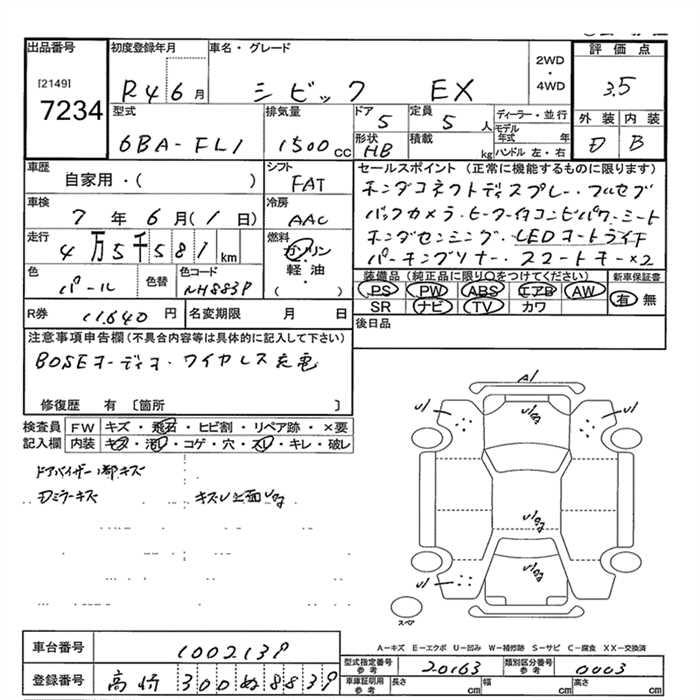 出品番号
[2149]
7234
初度登録年月
R4 6月
車名・グレード
シビック EX
2WD
・
4WD
評価点
3.5
外装 内装
D B
型式
6BA-FL1
排気量
1500cc
ドア
5
定員
5人
形状
HB
積載
kg
ディーラー・並行
モデル
年式 年
ハンドル 左・右
車歴
自家用・( )
シフト
FAT
車検
7年6月(1日)
冷房
AAC
走行
4万5千581km
燃料
ガソリン
軽油
( )
色
パール
色替
色コード
NH883P
セールスポイント(正常に機能するものに限ります)
ホンダコネクトディスプレー・フルセグ
バックカメラ・ヒーター付コンビパワーシート
ホンダセンシング・LEDオートライト
パーキングソナー・スマートキー×2
装備品(純正品に限り○をつけてください)
PS PW ABS エアB AW
SR ナビ TV カワ
新車保証書
有 無
R券 11,640円
名変期限 月 日
後日品
注意事項申告欄(不具合内容等は具体的に記入して下さい)
BOSEオーディオ・ワイヤレス充電
修復歴 有〔箇所 〕
検査員
記入欄
FW キズ・飛石・ヒビ割・リペア跡・×要
内装 キズ・汚れ・コゲ・穴・スレ・キレ・破レ
ドアバイザー1部キズ
Dミラーキズ
A1
U1
U1
U1
スペア
A−キズ E−エクボ U−凹み W−補修跡 S−サビ C−腐食 XX−交換済
車台番号
1002139
登録番号
高崎 300 ぬ 8839
型式指定番号
参考
20163
類別区分番号
参考
0003
車庫証明用
参考
長さ cm
幅 cm
高さ cm